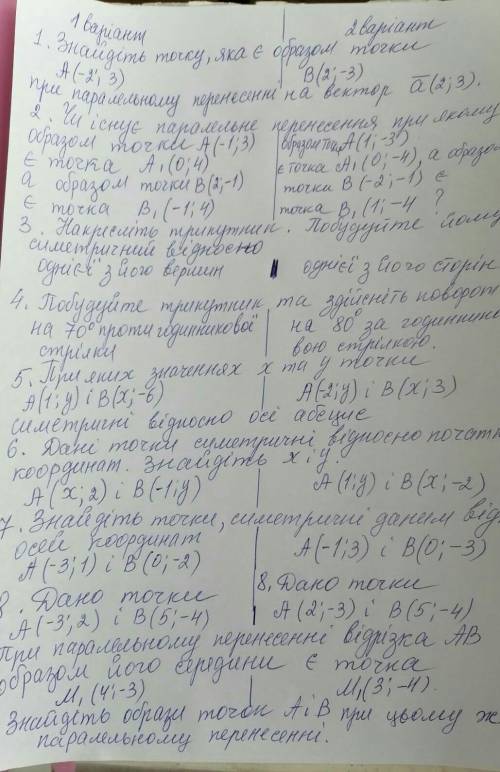 1 варіант 2 варіант
1. Знайдіть точку, яка є образом точки
A(-2; 3) B(2; -3)
при паралельному перенесенні на вектор a(2; 3).
2. Чи існує паралельне перенесення при якому
образом точки A(-1; 3) образом точки A(1; -3)
є точка A₁(0; 4) є точка A₁(0; -4), а образом
а образом точки B(2; -1) точки B(-2; -1) є
є точка B₁(-1; 4) точка B₁(1; -4 ?
3. Накресліть трикутник. Побудуйте йому
симетричний відносно
однієї з його вершин однієї з його сторін
4. Побудуйте трикутник та здійсніть поворот
на 70° проти годинникової на 80° за годиннико
стрілки вою стрілкою.
5. При яких значеннях x та y точки
A(1; y) і B(x; -6) A(-2; y) і B(x; 3)
симетричні відносно осі абсцис
6. Дані точки симетричні відносно початк
координат. Знайдіть x і y.
A(x; 2) і B(-1; y) A(1; y) і B(x; -2)
7. Знайдіть точки, симетричні даним від
осей координат
A(-3; 1) і B(0; -2) A(-1; 3) і B(0; -3)
8. Дано точки 8. Дано точки
A(-3; 2) і B(5; -4) A(2; -3) і B(5; -4)
При паралельному перенесенні відрізка AB
образом його середини є точка
M₁(4; -3) M₁(3; -4).
Знайдіть образи точок A і B при цьому ж
паралельному перенесенні.